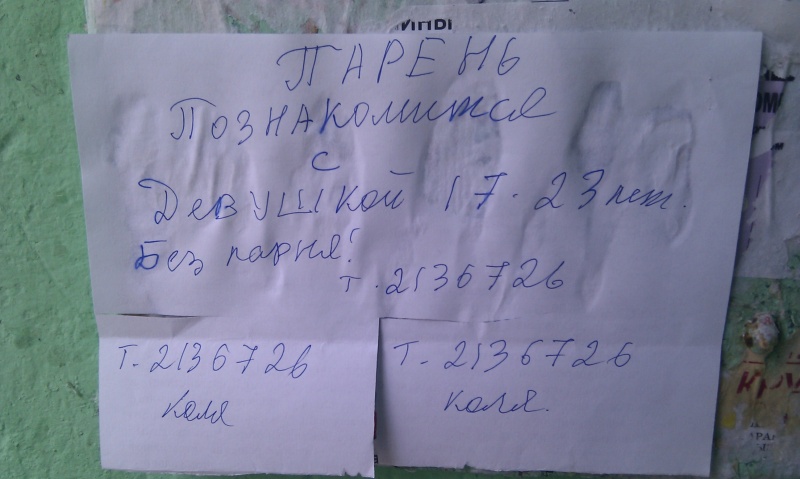 ПАРЕНЬ
Познакомится
с
Девушкой 17-23 лет.
Без парня!
т. 2136726
т. 2136726
Коля
т. 2136726
Коля.